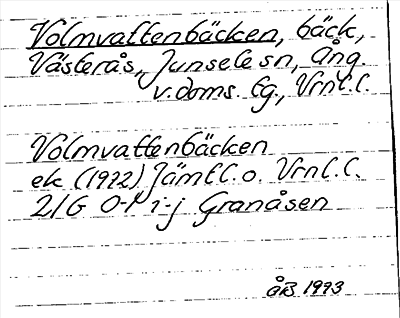 Volmvattenbäcken, bäck,
Västerås, Junsele sn, Ång.
v. doms. lg, Vrnl. l.
Volmvattenbäcken
ek (1972) Jämtl. o. Vrnl. l.
21G 0-1 i-j Granåsen
ÅB 1993